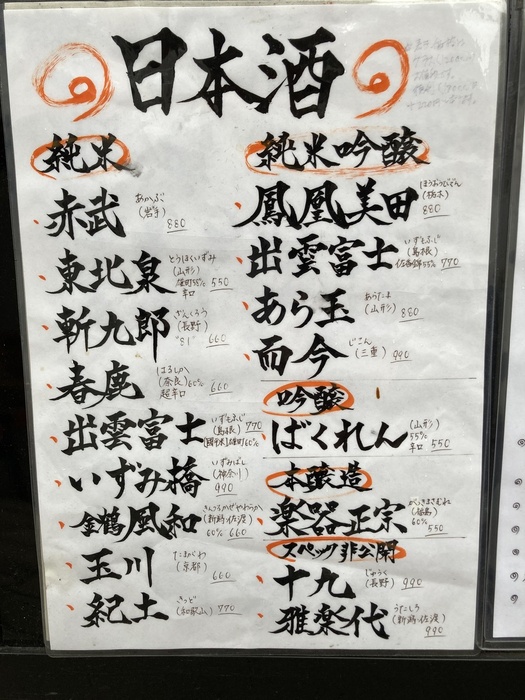 日本酒
純米
赤武 あかぶ (岩手) 880
東北泉 とうほくいずみ (山形) 雄町55% 辛口 550
斬九郎 ざんくろう (長野) "81" 660
春鹿 はるしか (奈良) 60% 超辛口 660
出雲富士 いずもふじ (島根) 雄町60% 770
いずみ橋 いずみばし (神奈川) 990
金鶴 風和 きんつる かぜやわらか (新潟・佐渡) 60% 660
玉川 たまがわ (京都) 660
紀土 きっど (和歌山) 770
純米吟醸
鳳凰美田 ほうおうびでん (栃木) 880
出雲富士 いずもふじ (島根) 佐香錦55% 770
あら玉 あらたま (山形) 880
而今 じこん (三重) 990
吟醸
ばくれん (山形) 55% 辛口 550
本醸造
楽器正宗 がっきまさむね (福島) 60% 550
スペック非公開
十九 じゅうく (長野) 990
雅楽代 うたしろ (新潟・佐渡) 990